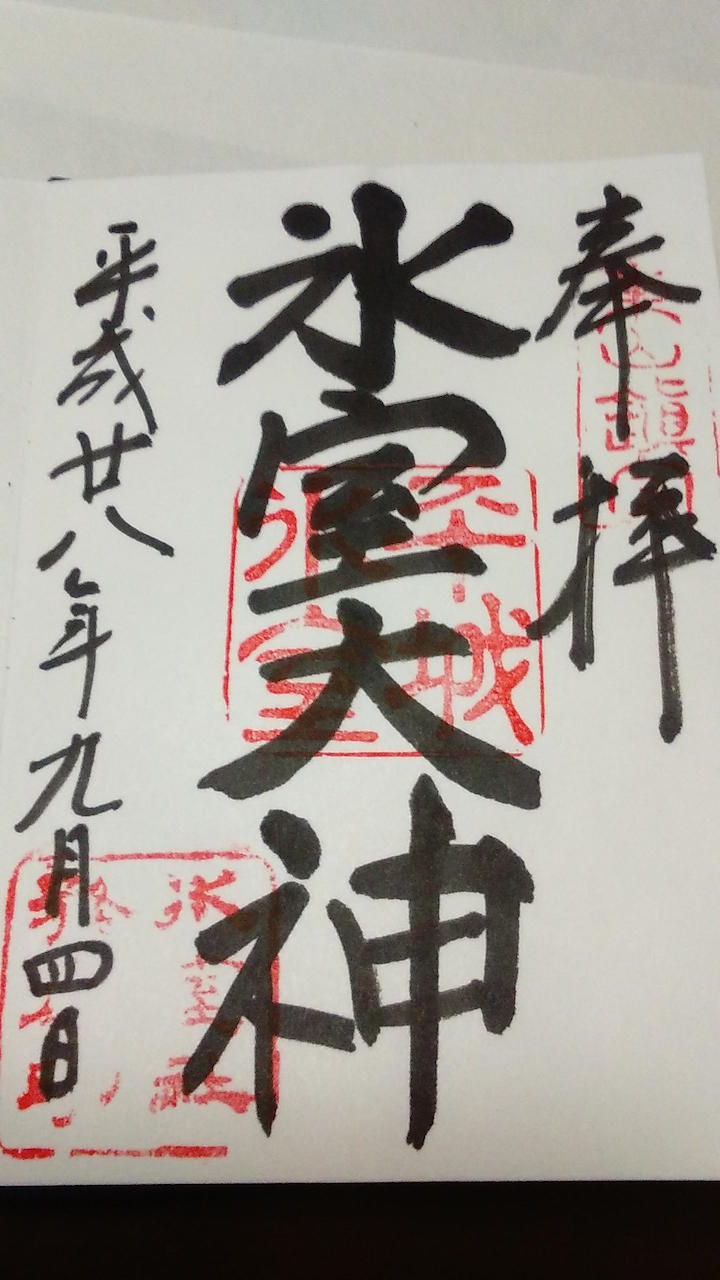 奉拝
氷室大神
平城
氷室
平成廿八年九月四日